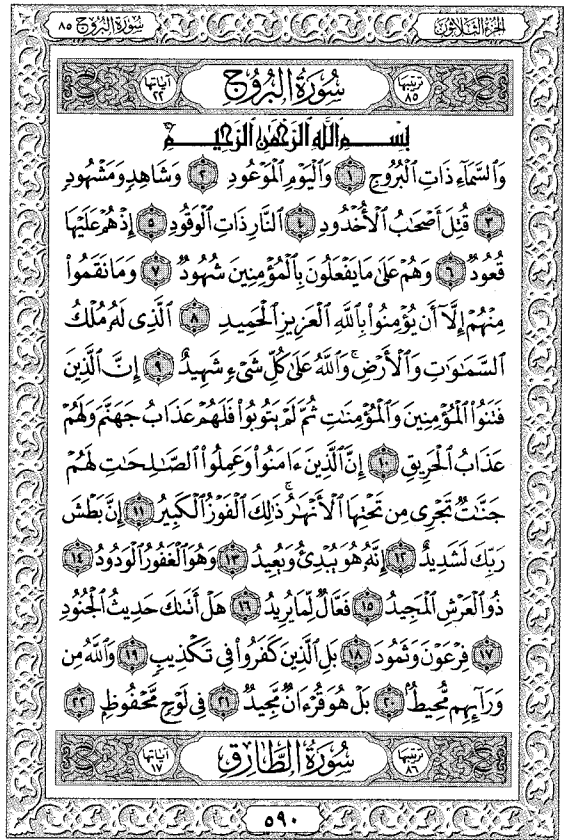 الجزء الثلاثون
سورة البروج ٨٥
ترتيبها ٨٥ سُورَةُ البُرُوج آياتها ٢٢
بِسْمِ اللَّهِ الرَّحْمَٰنِ الرَّحِيمِ
وَٱلسَّمَآءِ ذَاتِ ٱلْبُرُوجِ ١ وَٱلْيَوْمِ ٱلْمَوْعُودِ ٢ وَشَاهِدٍ وَمَشْهُودٍ
٣ قُتِلَ أَصْحَٰبُ ٱلْأُخْدُودِ ٤ ٱلنَّارِ ذَاتِ ٱلْوَقُودِ ٥ إِذْ هُمْ عَلَيْهَا
قُعُودٌ ٦ وَهُمْ عَلَىٰ مَا يَفْعَلُونَ بِٱلْمُؤْمِنِينَ شُهُودٌ ٧ وَمَا نَقَمُوا۟
مِنْهُمْ إِلَّآ أَن يُؤْمِنُوا۟ بِٱللَّهِ ٱلْعَزِيزِ ٱلْحَمِيدِ ٨ ٱلَّذِى لَهُۥ مُلْكُ
ٱلسَّمَٰوَٰتِ وَٱلْأَرْضِ ۚ وَٱللَّهُ عَلَىٰ كُلِّ شَىْءٍ شَهِيدٌ ٩ إِنَّ ٱلَّذِينَ
فَتَنُوا۟ ٱلْمُؤْمِنِينَ وَٱلْمُؤْمِنَٰتِ ثُمَّ لَمْ يَتُوبُوا۟ فَلَهُمْ عَذَابُ جَهَنَّمَ وَلَهُمْ
عَذَابُ ٱلْحَرِيقِ ١٠ إِنَّ ٱلَّذِينَ ءَامَنُوا۟ وَعَمِلُوا۟ ٱلصَّٰلِحَٰتِ لَهُمْ
جَنَّٰتٌ تَجْرِى مِن تَحْتِهَا ٱلْأَنْهَٰرُ ۚ ذَٰلِكَ ٱلْفَوْزُ ٱلْكَبِيرُ ١١ إِنَّ بَطْشَ
رَبِّكَ لَشَدِيدٌ ١٢ إِنَّهُۥ هُوَ يُبْدِئُ وَيُعِيدُ ١٣ وَهُوَ ٱلْغَفُورُ ٱلْوَدُودُ ١٤
ذُو ٱلْعَرْشِ ٱلْمَجِيدُ ١٥ فَعَّالٌ لِّمَا يُرِيدُ ١٦ هَلْ أَتَىٰكَ حَدِيثُ ٱلْجُنُودِ
١٧ فِرْعَوْنَ وَثَمُودَ ١٨ بَلِ ٱلَّذِينَ كَفَرُوا۟ فِى تَكْذِيبٍ ١٩ وَٱللَّهُ مِن
وَرَآئِهِم مُّحِيطٌۢ ٢٠ بَلْ هُوَ قُرْءَانٌ مَّجِيدٌ ٢١ فِى لَوْحٍ مَّحْفُوظٍۭ ٢٢
ترتيبها ٨٦ سُورَةُ الطَّارِق آياتها ١٧
٥٩٠